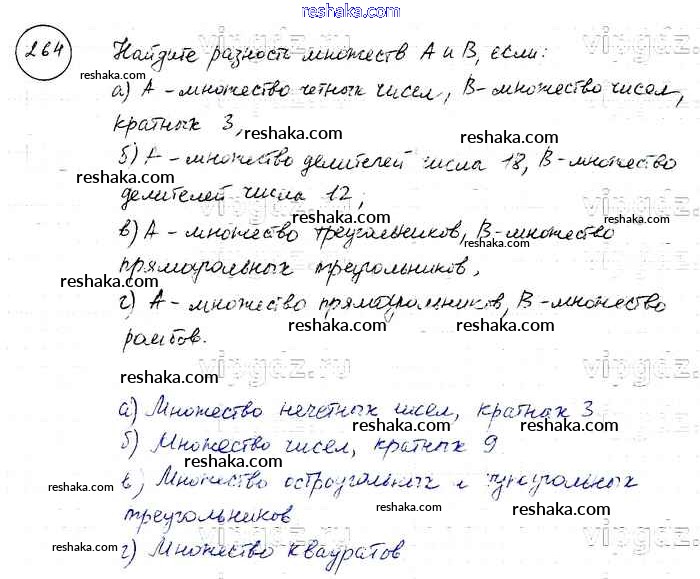 reshaka.com
264
Найдите разность множеств А и В, если:
reshaka.com
reshaka.com
а) А - множество четных чисел, В - множество чисел,
кратных 3,
reshaka.com
reshaka.com
б) А - множество делителей числа 18, В - множество
reshaka.com
делителей числа 12;
reshaka.com
reshaka.com
в) А - множество треугольников, В - множество
reshaka.com
reshaka.com
прямоугольных треугольников,
reshaka.com
г) А - множество прямоугольников, В - множество
reshaka.com
reshaka.com
ромбов.
vipgdz.ru
vipgdz.ru
reshaka.com
reshaka.com
а) Множество нечетных чисел, кратных 3
reshaka.com
reshaka.com
б) Множество чисел, кратных 9
reshaka.com
reshaka.com
в) Множество остроугольных и тупоугольных
reshaka.com
reshaka.com
треугольников
vipgdz.ru
vipgdz.ru
г) Множество квадратов
reshaka.com
reshaka.com
reshaka.com